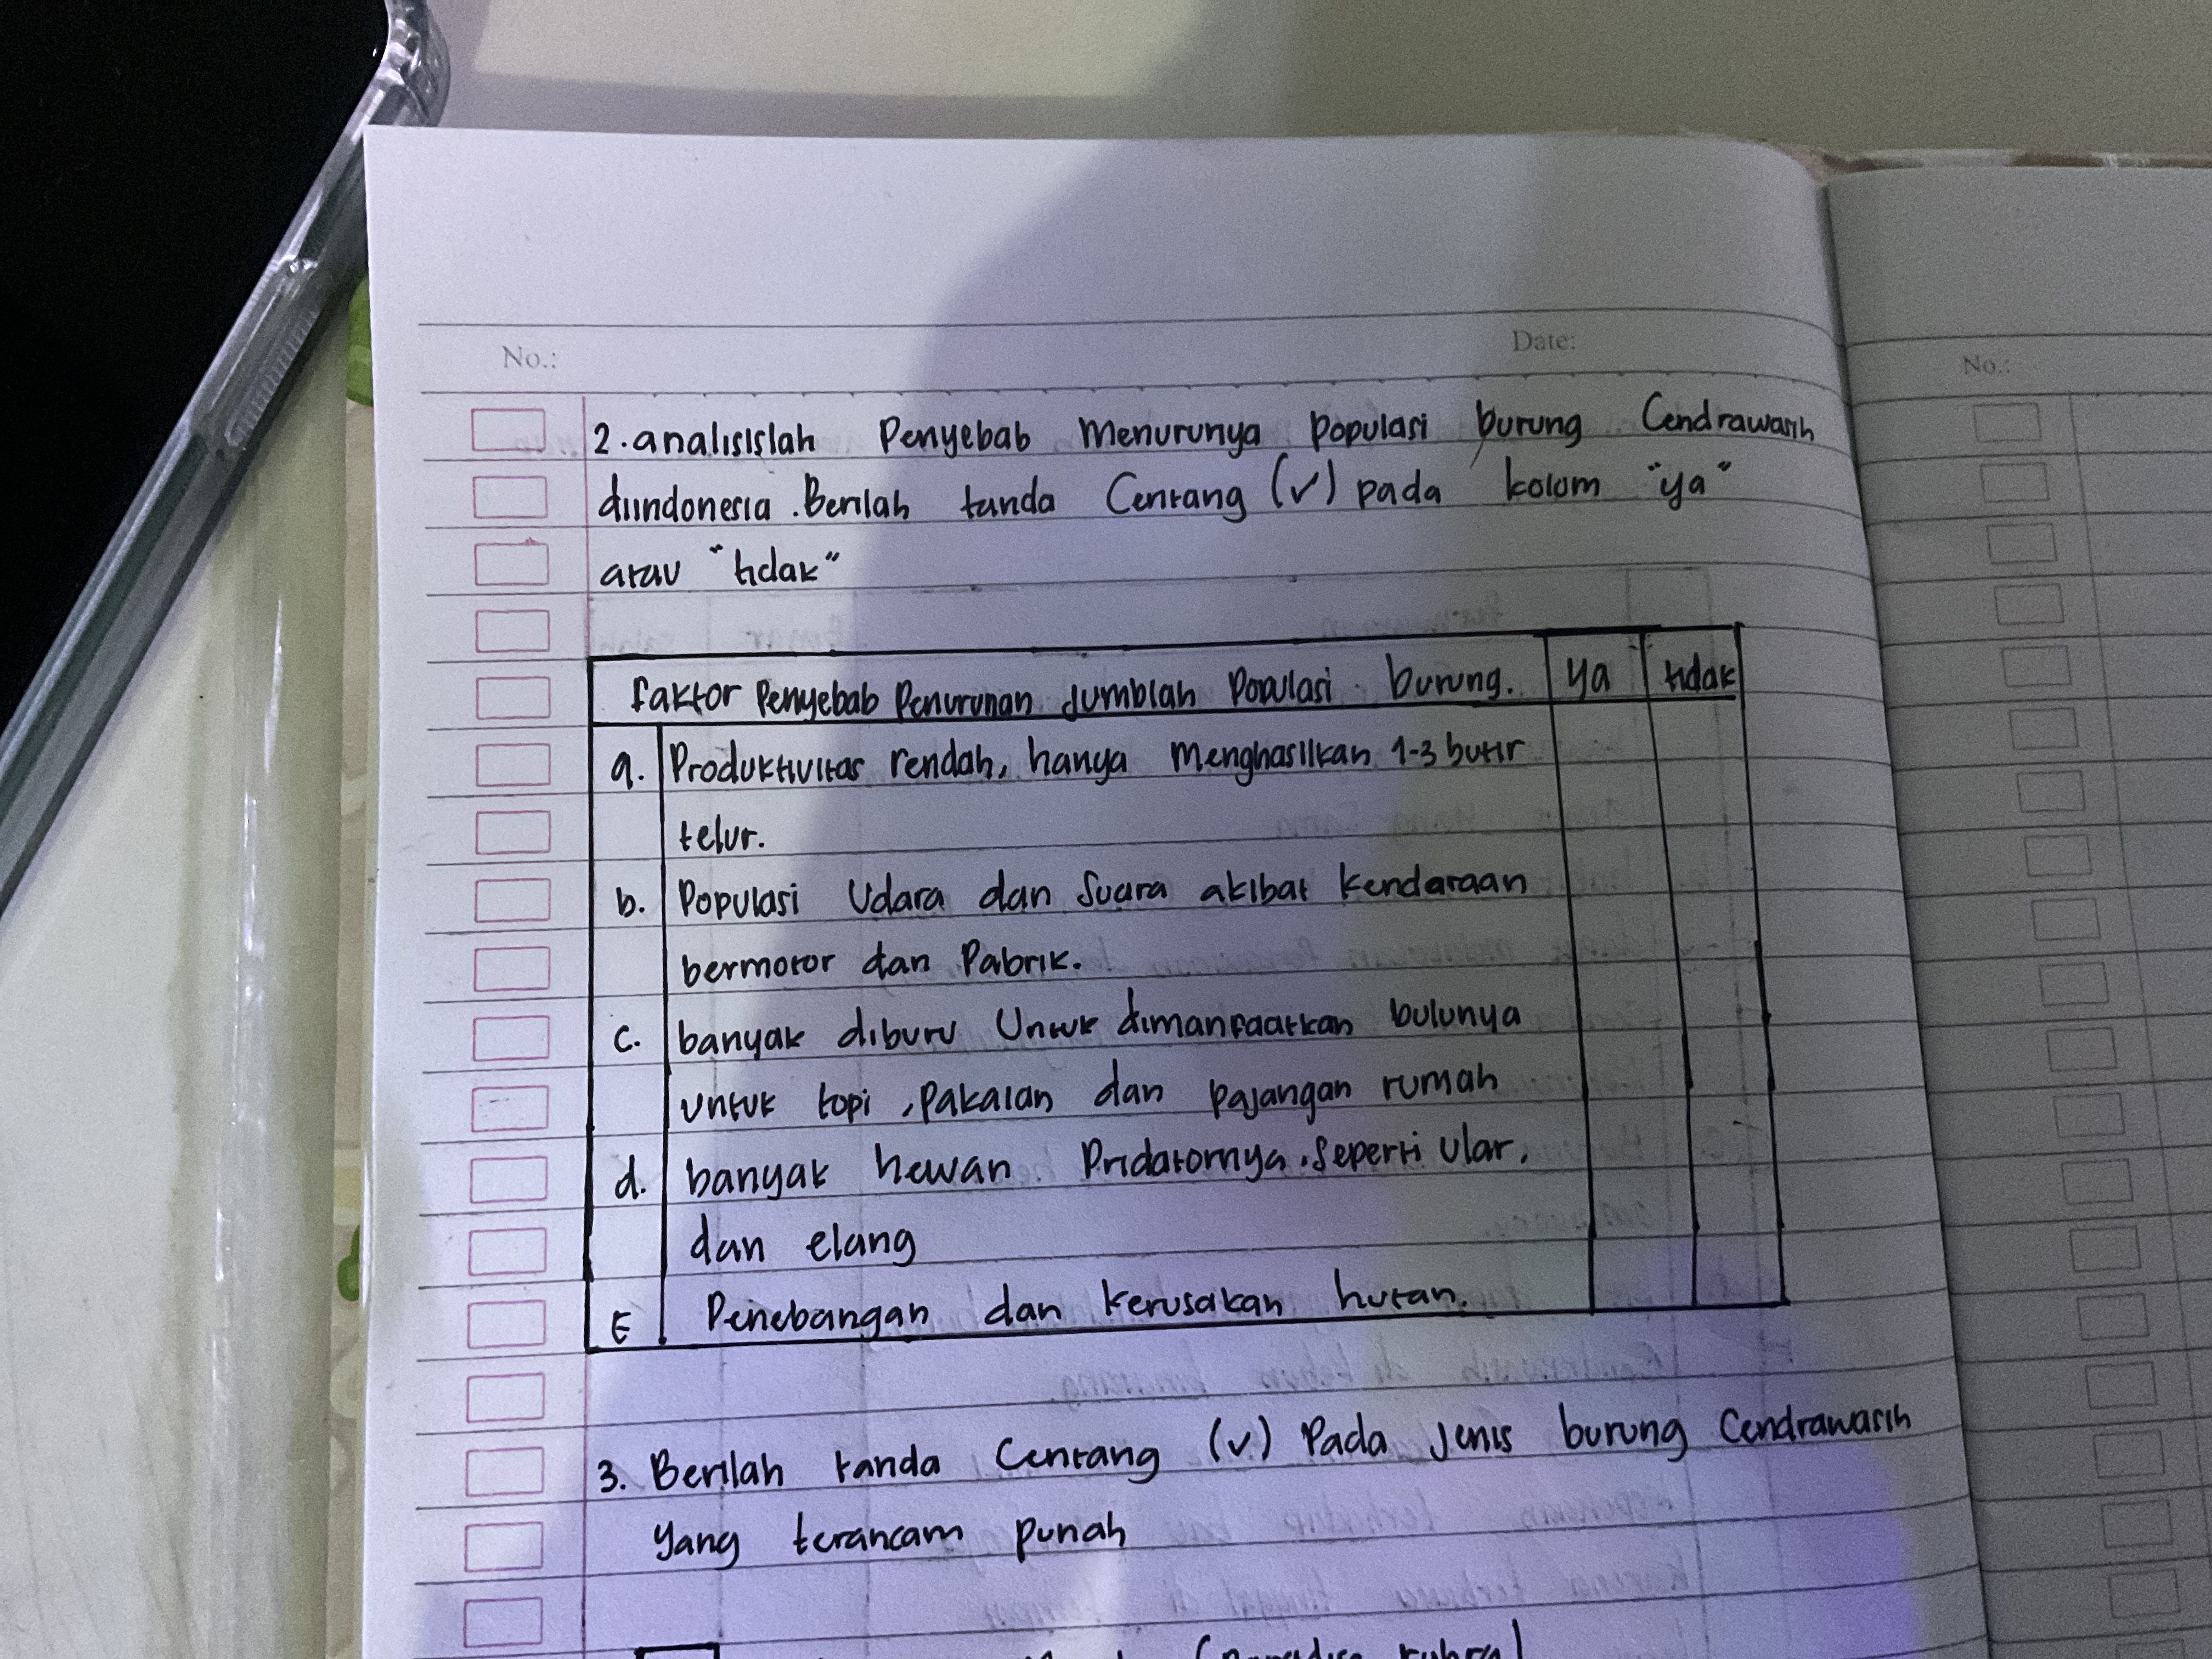 No.:
Date:
No.:
2. analisislah Penyebab Menurunya populasi burung Cendrawasih
diindonesia. Berilah tanda Centang (✓) pada kolom "ya"
atau "tidak"
faktor Penyebab Penurunan Jumblah Populasi burung. ya tidak
a. Produktivitas rendah, hanya Menghasilkan 1-3 butir
telur.
b. Populasi Udara dan Suara akibat kendaraan
bermotor dan Pabrik.
c. banyak diburu Untuk dimanfaatkan bulunya
untuk topi, pakaian dan pajangan rumah
d. banyak hewan Pridatornya. Seperti ular,
dan elang
E Penebangan dan kerusakan hutan.
3. Berilah tanda Centang (✓) Pada Jenis burung Cendrawasih
yang terancam punah